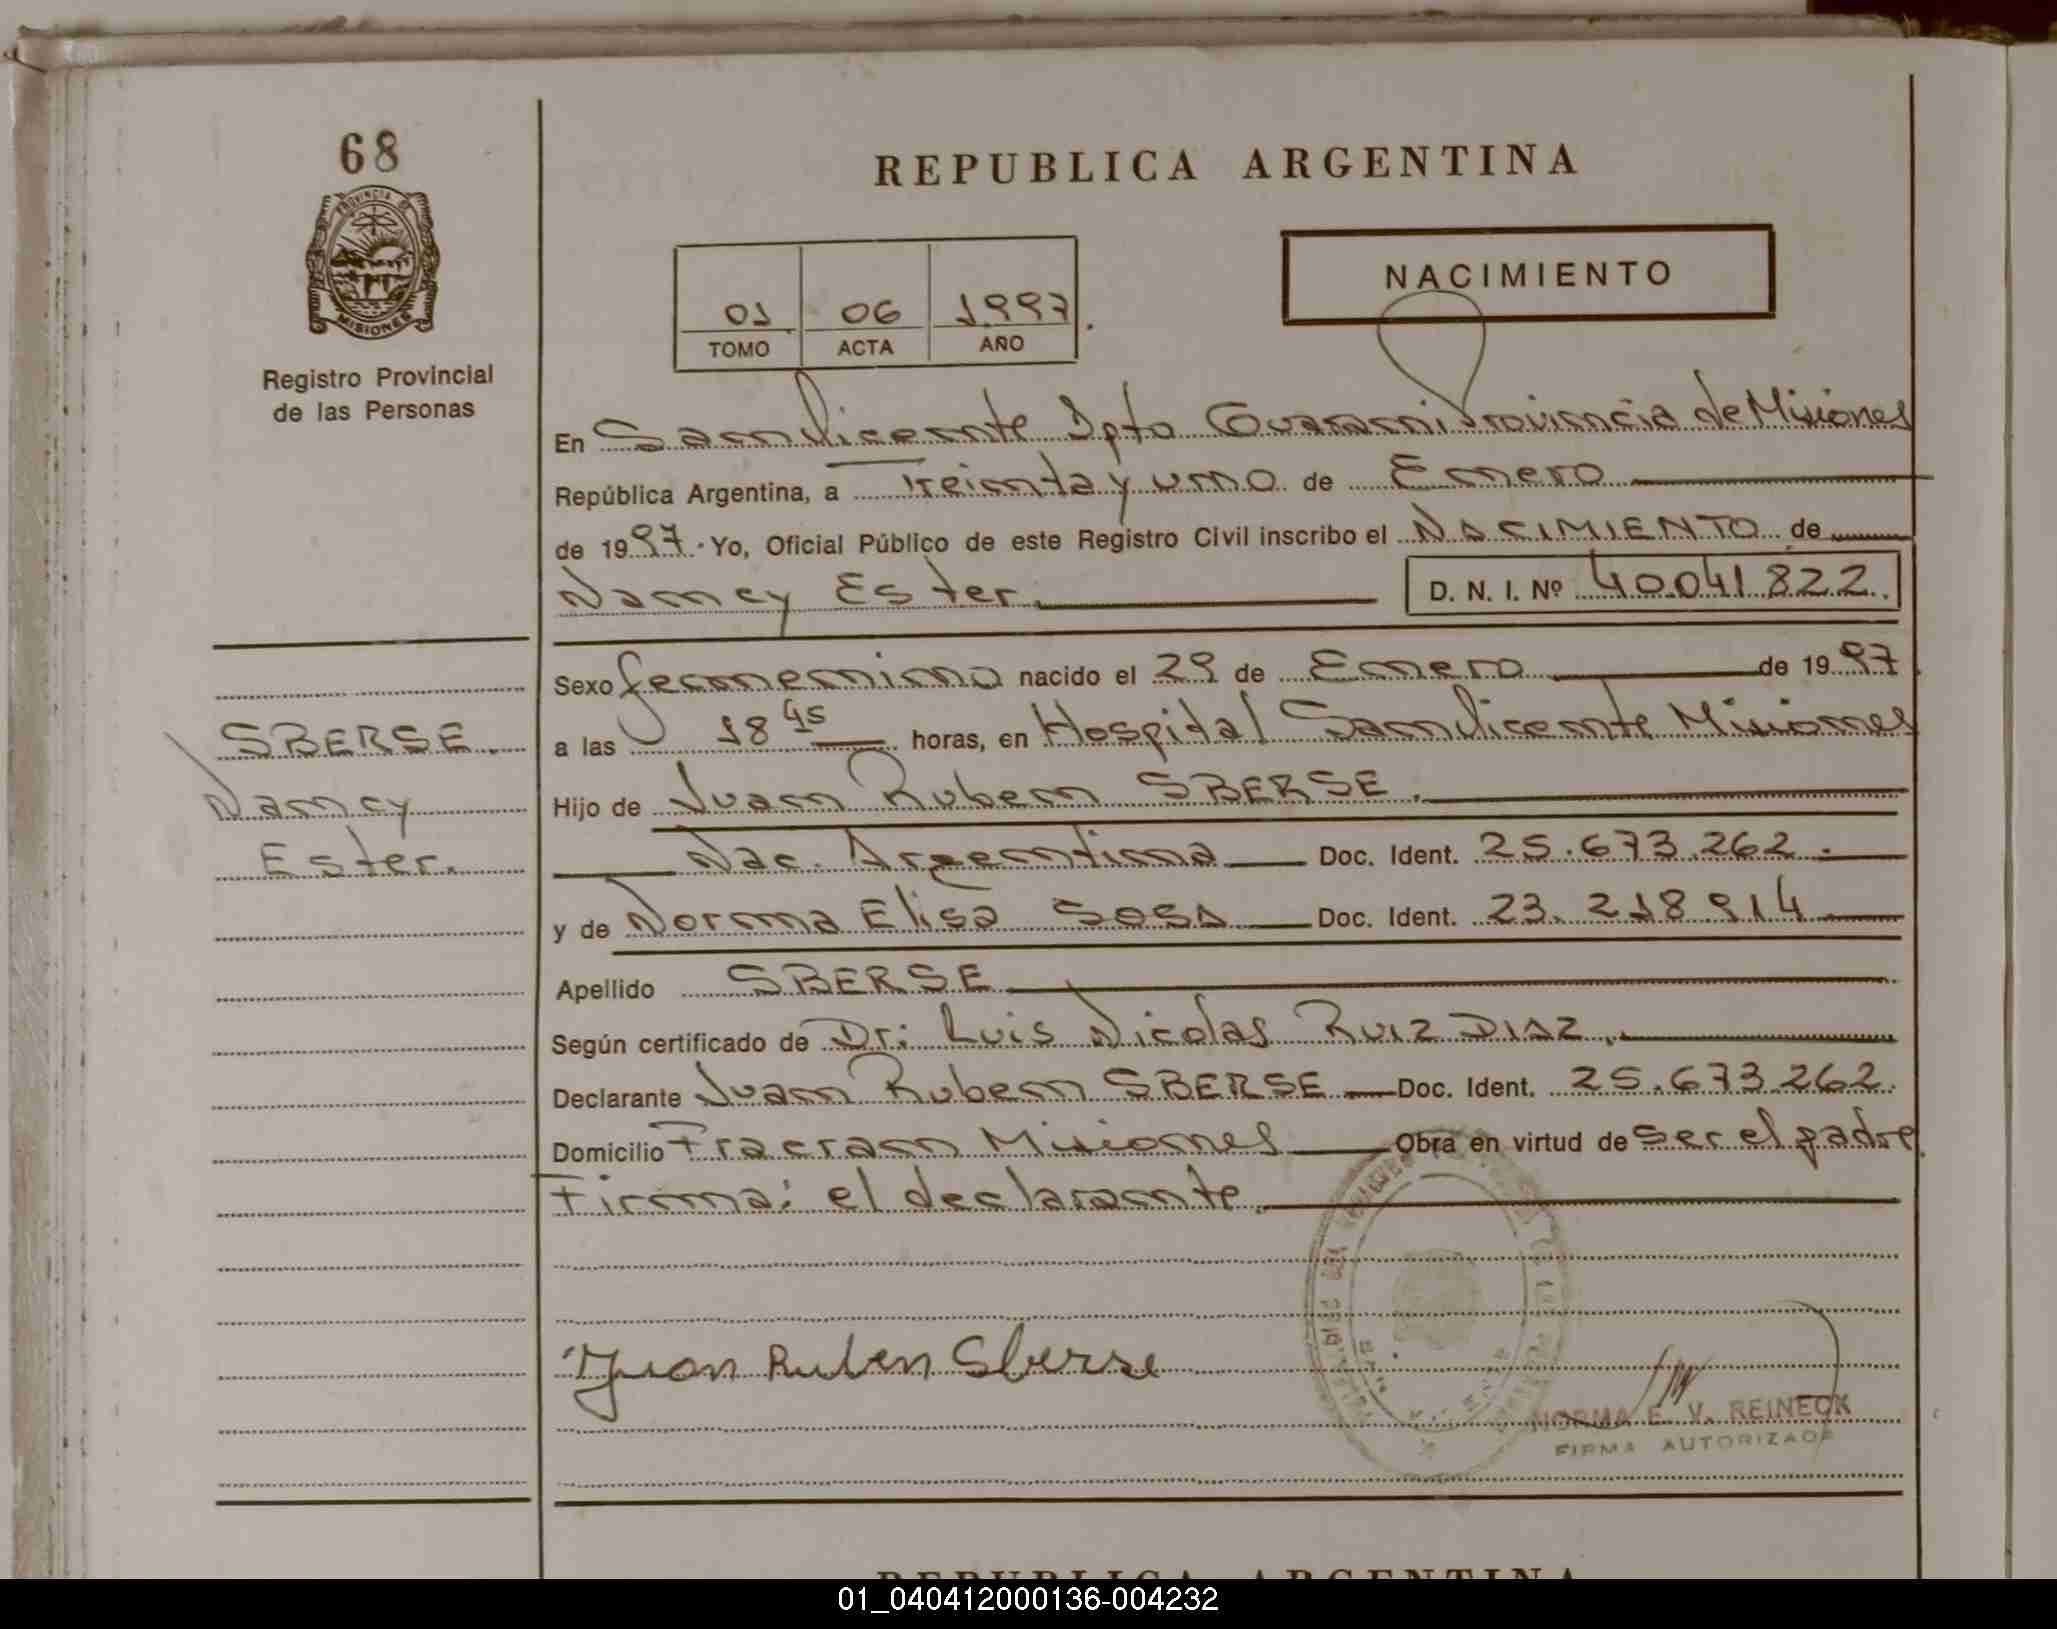 68
PROVINCIA DE
MISIONES
Registro Provincial
de las Personas
REPUBLICA ARGENTINA
01 06 1997
TOMO ACTA AÑO
NACIMIENTO
En San Vicente Dpto Guarani Provincia de Misiones
República Argentina, a Treinta y uno de Enero
de 1997. Yo, Oficial Público de este Registro Civil inscribo el NACIMIENTO de
Nancy Ester. D. N. I. Nº 40041822.
Sexo femenino nacido el 29 de Enero de 1997
a las 18 45 horas, en Hospital San Vicente Misiones
Hijo de Juan Ruben SBERSE.
Nac. Argentina Doc. Ident. 25.673.262.
y de Norma Elisa SOSA Doc. Ident. 23.218914
Apellido SBERSE
Según certificado de Dr: Luis Nicolas RUIZ DIAZ.
Declarante Juan Ruben SBERSE Doc. Ident. 25.673.262.
Domicilio Fracran Misiones Obra en virtud de ser el padre.
Firma: el declarante.
SBERSE.
Nancy
Ester.
Juan Ruben Sberse
NORMA E. V. REINECK
FIRMA AUTORIZADA
REPUBLICA ARGENTINA
01_040412000136-004232